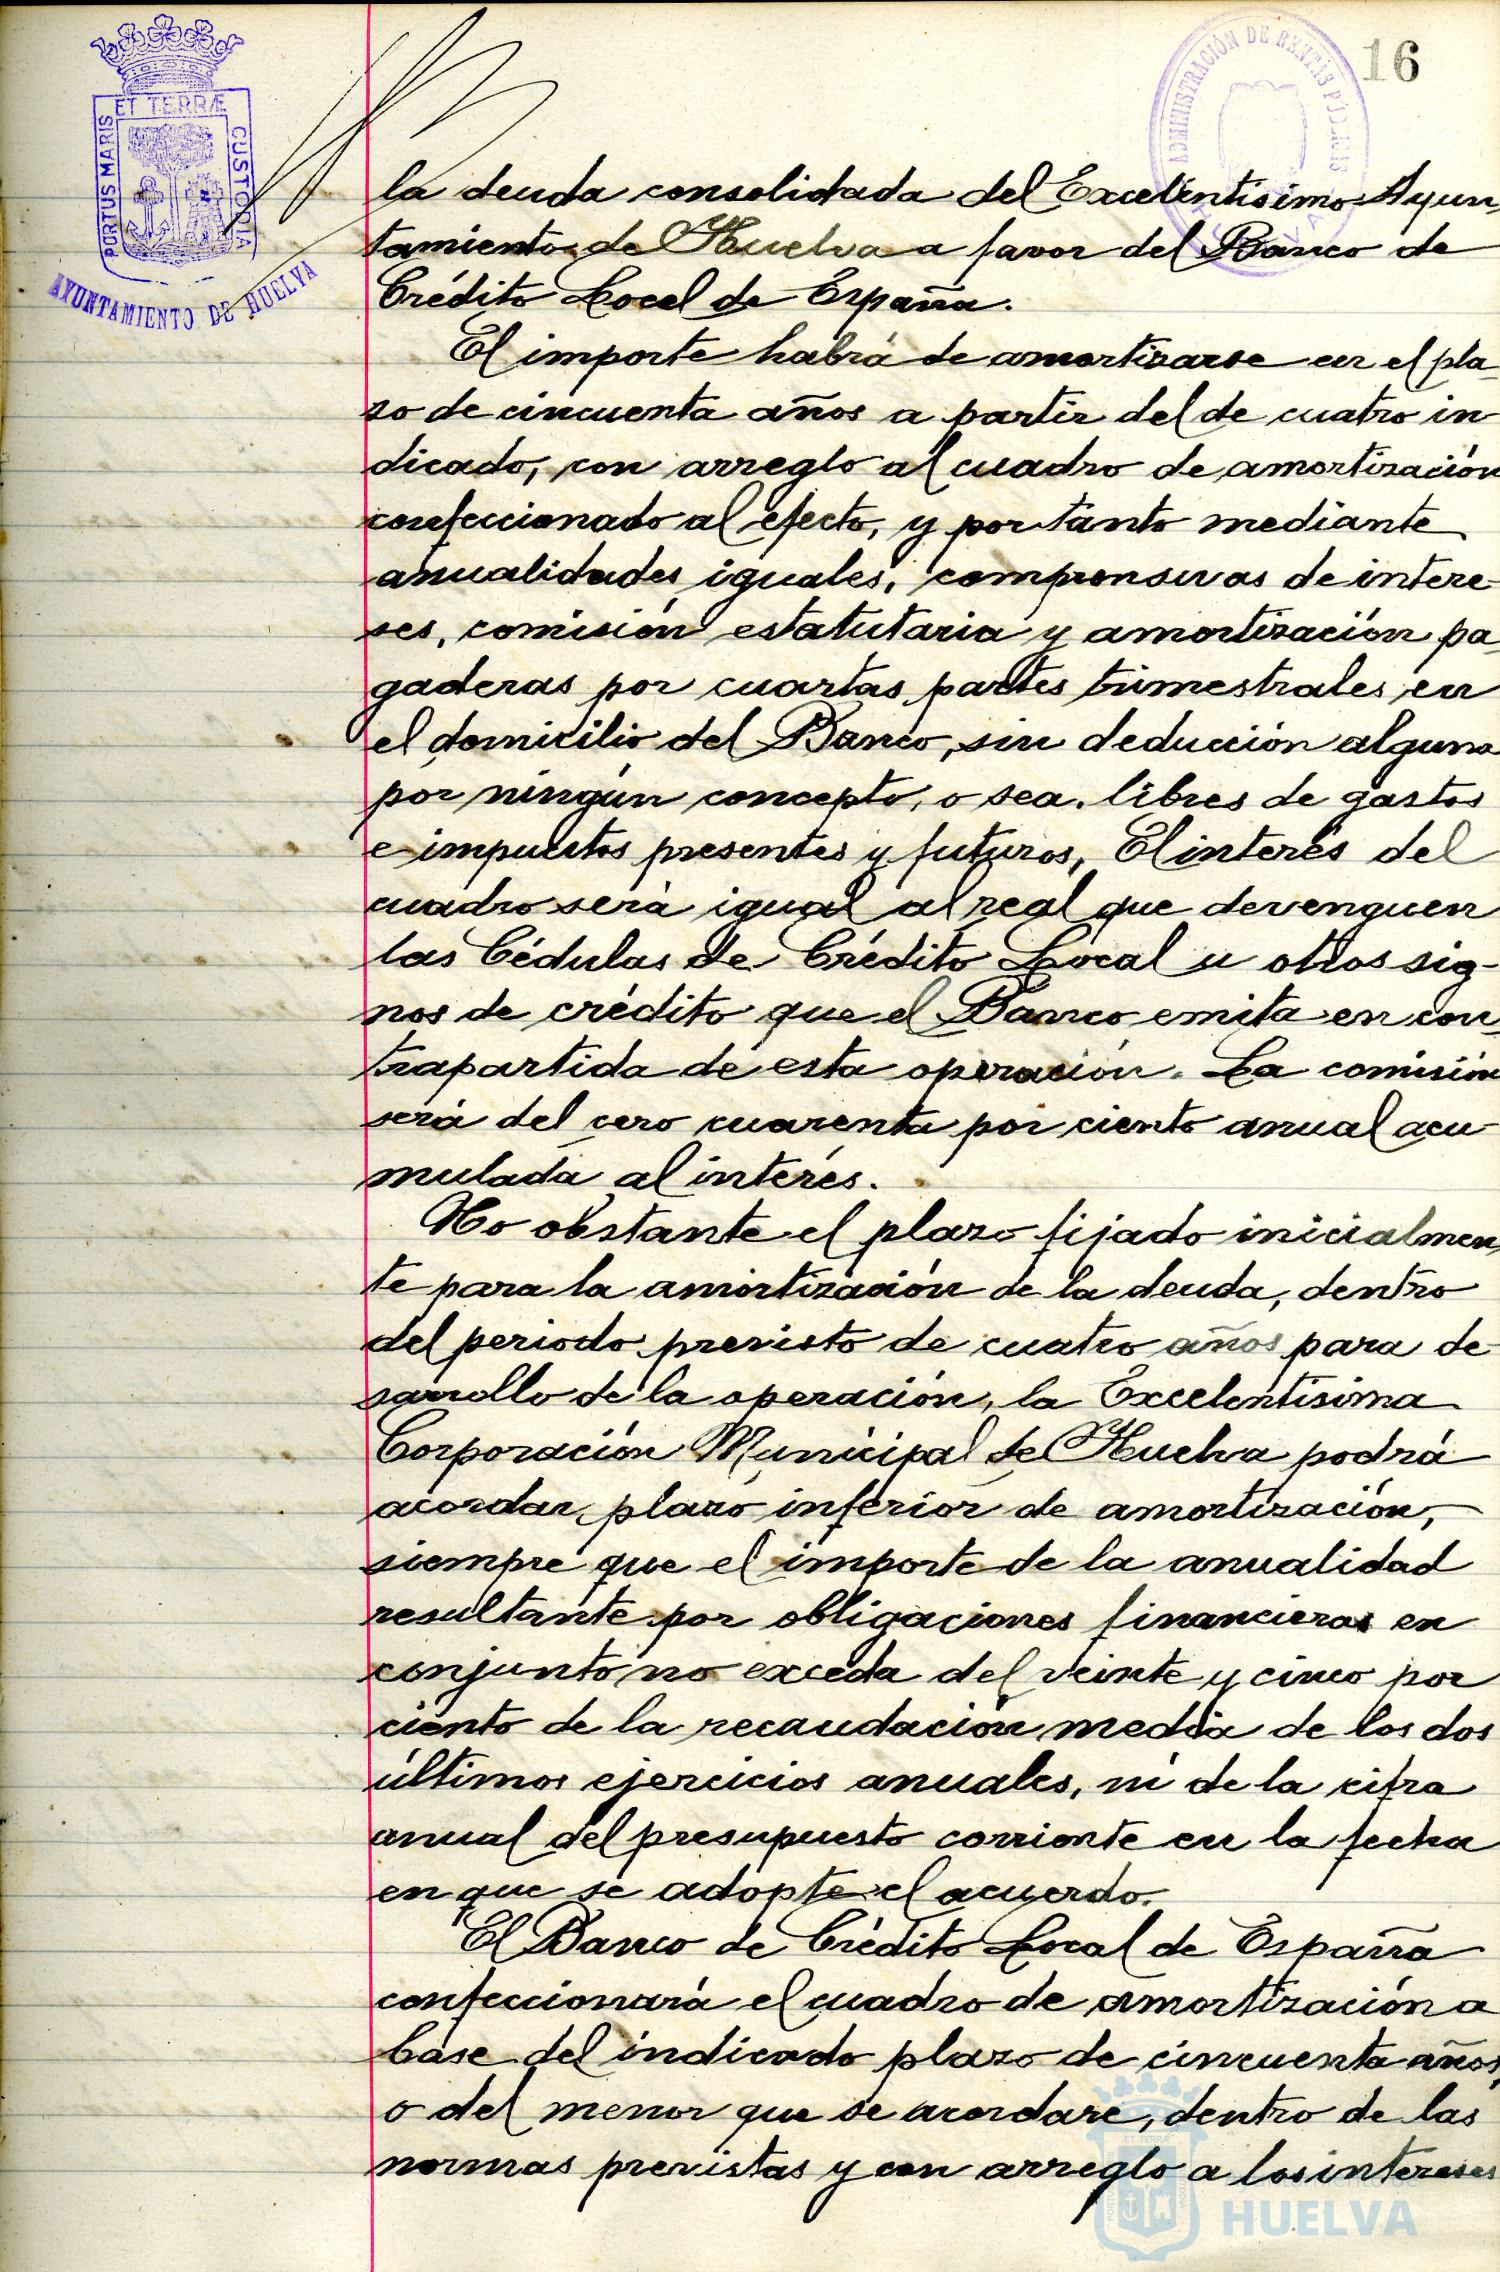 16
ADMINISTRACIÓN DE RENTAS PÚBLICAS
ET TERRÆ
PORTUS MARIS
CUSTODIA
AYUNTAMIENTO DE HUELVA
la deuda consolidada del Excelentísimo Ayun-
tamiento de Huelva a favor del Banco de
Crédito Local de España.
El importe habrá de amortizarse en el pla-
zo de cincuenta años a partir del de cuatro in
dicado, con arreglo al cuadro de amortización
confeccionado al efecto, y por tanto mediante
anualidades iguales, comprensivas de intere-
ses, comisión estatutaria y amortización pa-
gaderas por cuartas partes trimestrales, en
el domicilio del Banco, sin deducción alguna
por ningún concepto, o sea, libres de gastos
e impuestos presentes y futuros, El interés del
cuadro será igual al real que devenguen
las Cédulas de Crédito Local u otros sig-
nos de crédito que el Banco emita en con-
trapartida de esta operación. La comisión
será del cero cuarenta por ciento anual acu
mulada al interés.
No obstante el plazo fijado inicialmen-
te para la amortización de la deuda, dentro
del periodo previsto de cuatro años para de-
sarrollo de la operación, la Excelentísima
Corporación Municipal de Huelva podrá
acordar plazo inferior de amortización,
siempre que el importe de la anualidad
resultante por obligaciones financieras en
conjunto no exceda del veinte y cinco por
ciento de la recaudación media de los dos
últimos ejercicios anuales, ni de la cifra
anual del presupuesto corriente en la fecha
en que se adopte el acuerdo.
El Banco de Crédito Local de España
confeccionará el cuadro de amortización a
base del indicado plazo de cincuenta años,
o del menor que se acordare, dentro de las
normas previstas y con arreglo a los intereses
HUELVA